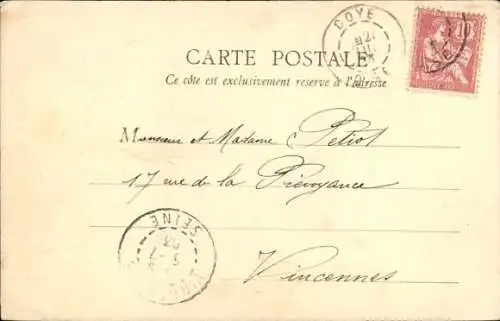 COYE
10
CARTE POSTALE
Ce côté est exclusivement réservé à l'adresse
Monsieur et Madame Petiot
17 rue de la Prévoyance
Vincennes
SEINE